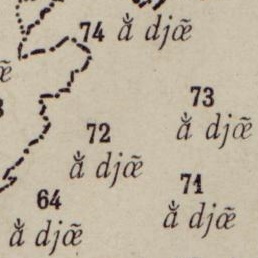 74 ã djœ̃
œ̃
73
ã djœ̃
72
ã djœ̃
71
ã djœ̃
64
ã djœ̃